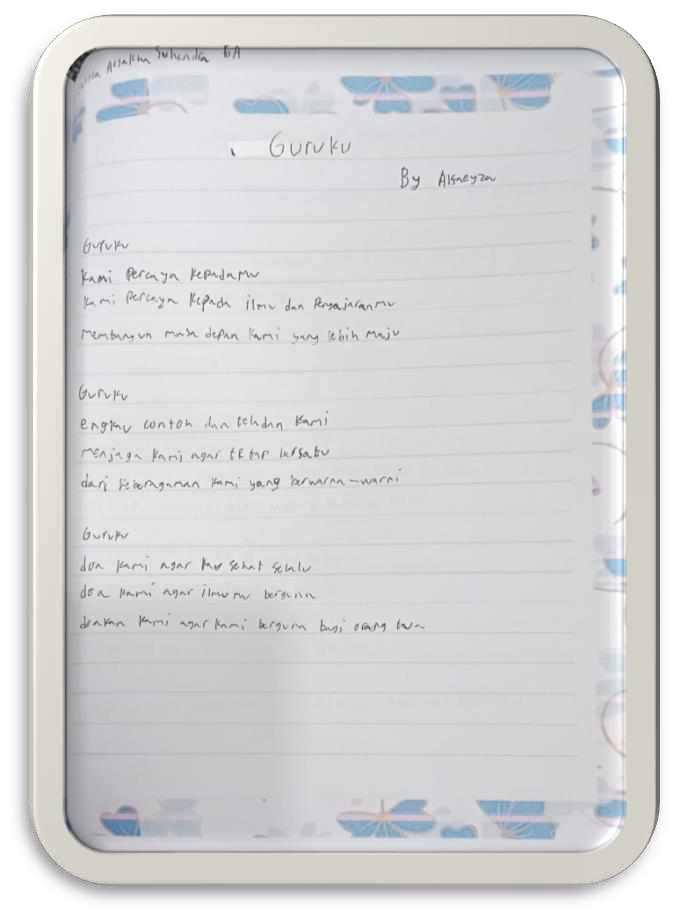 Suhendra 6A
Guruku
By
Guruku
Kami Percaya Kepadamu
Kami Percaya Kepada ilmu dan Pengajaranmu
Membangun masa depan Kami yang lebih Maju
Guruku
engkau contoh dan teladan Kami
menjaga Kami agar tetap bersatu
dari Keberagaman Kami yang berwarna-warni
Guruku
doa Kami agar kau sehat selalu
doa Kami agar ilmumu berguna
doakan Kami agar Kami berguna bagi orang